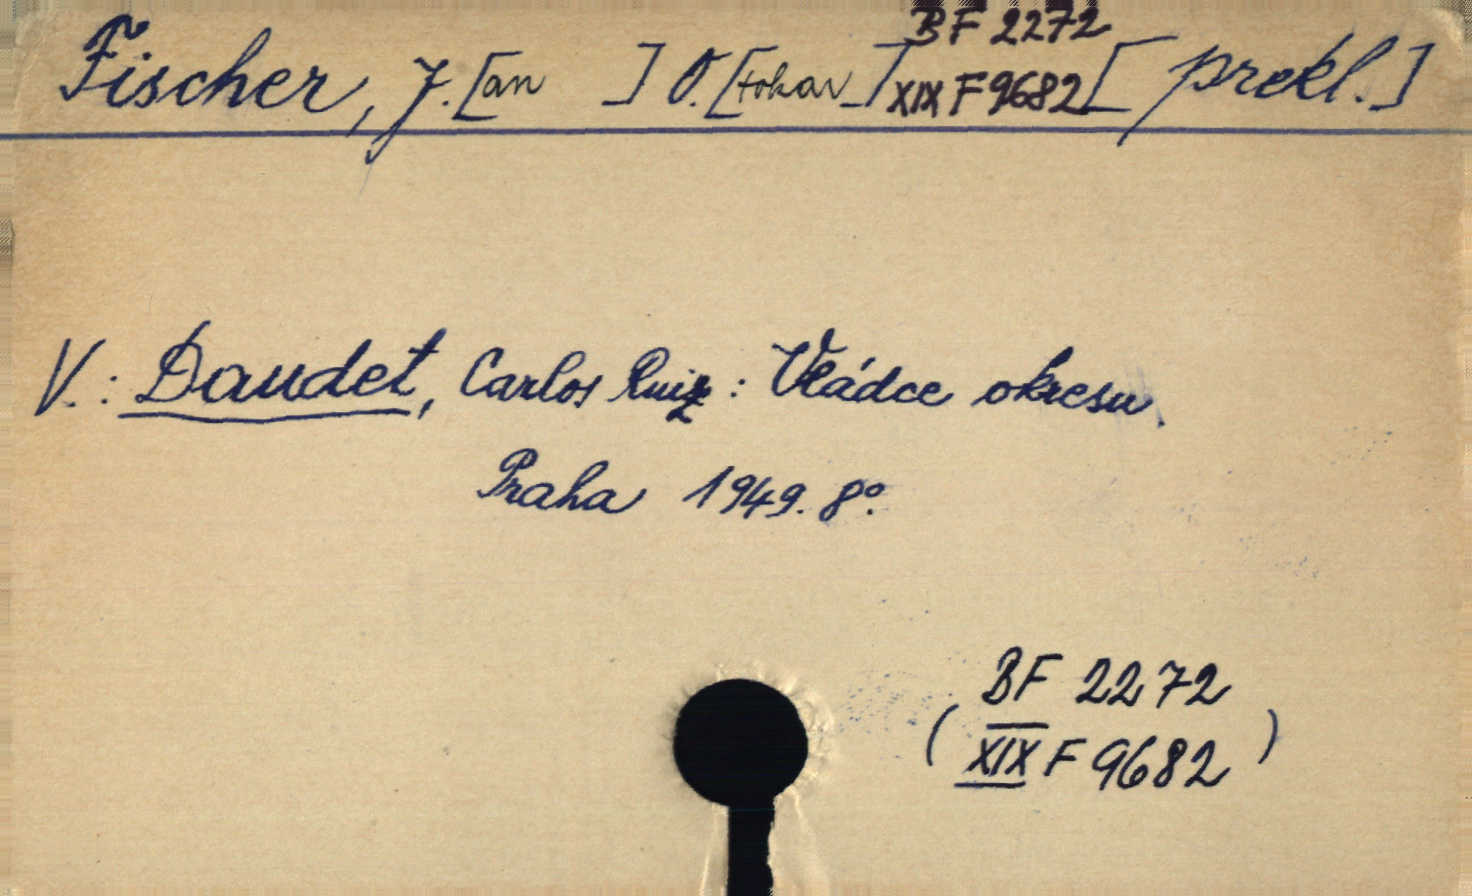 BF 2272
Fischer, J.[an ] O.[tokar] XIX F 9682 [překl.]
V.: Daudet, Carlos Ruiz: Vládce okresu.
Praha 1949. 8°.
BF 2272
(XIX F 9682)